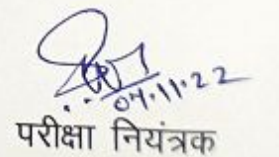 04.11.22
परीक्षा नियंत्रक